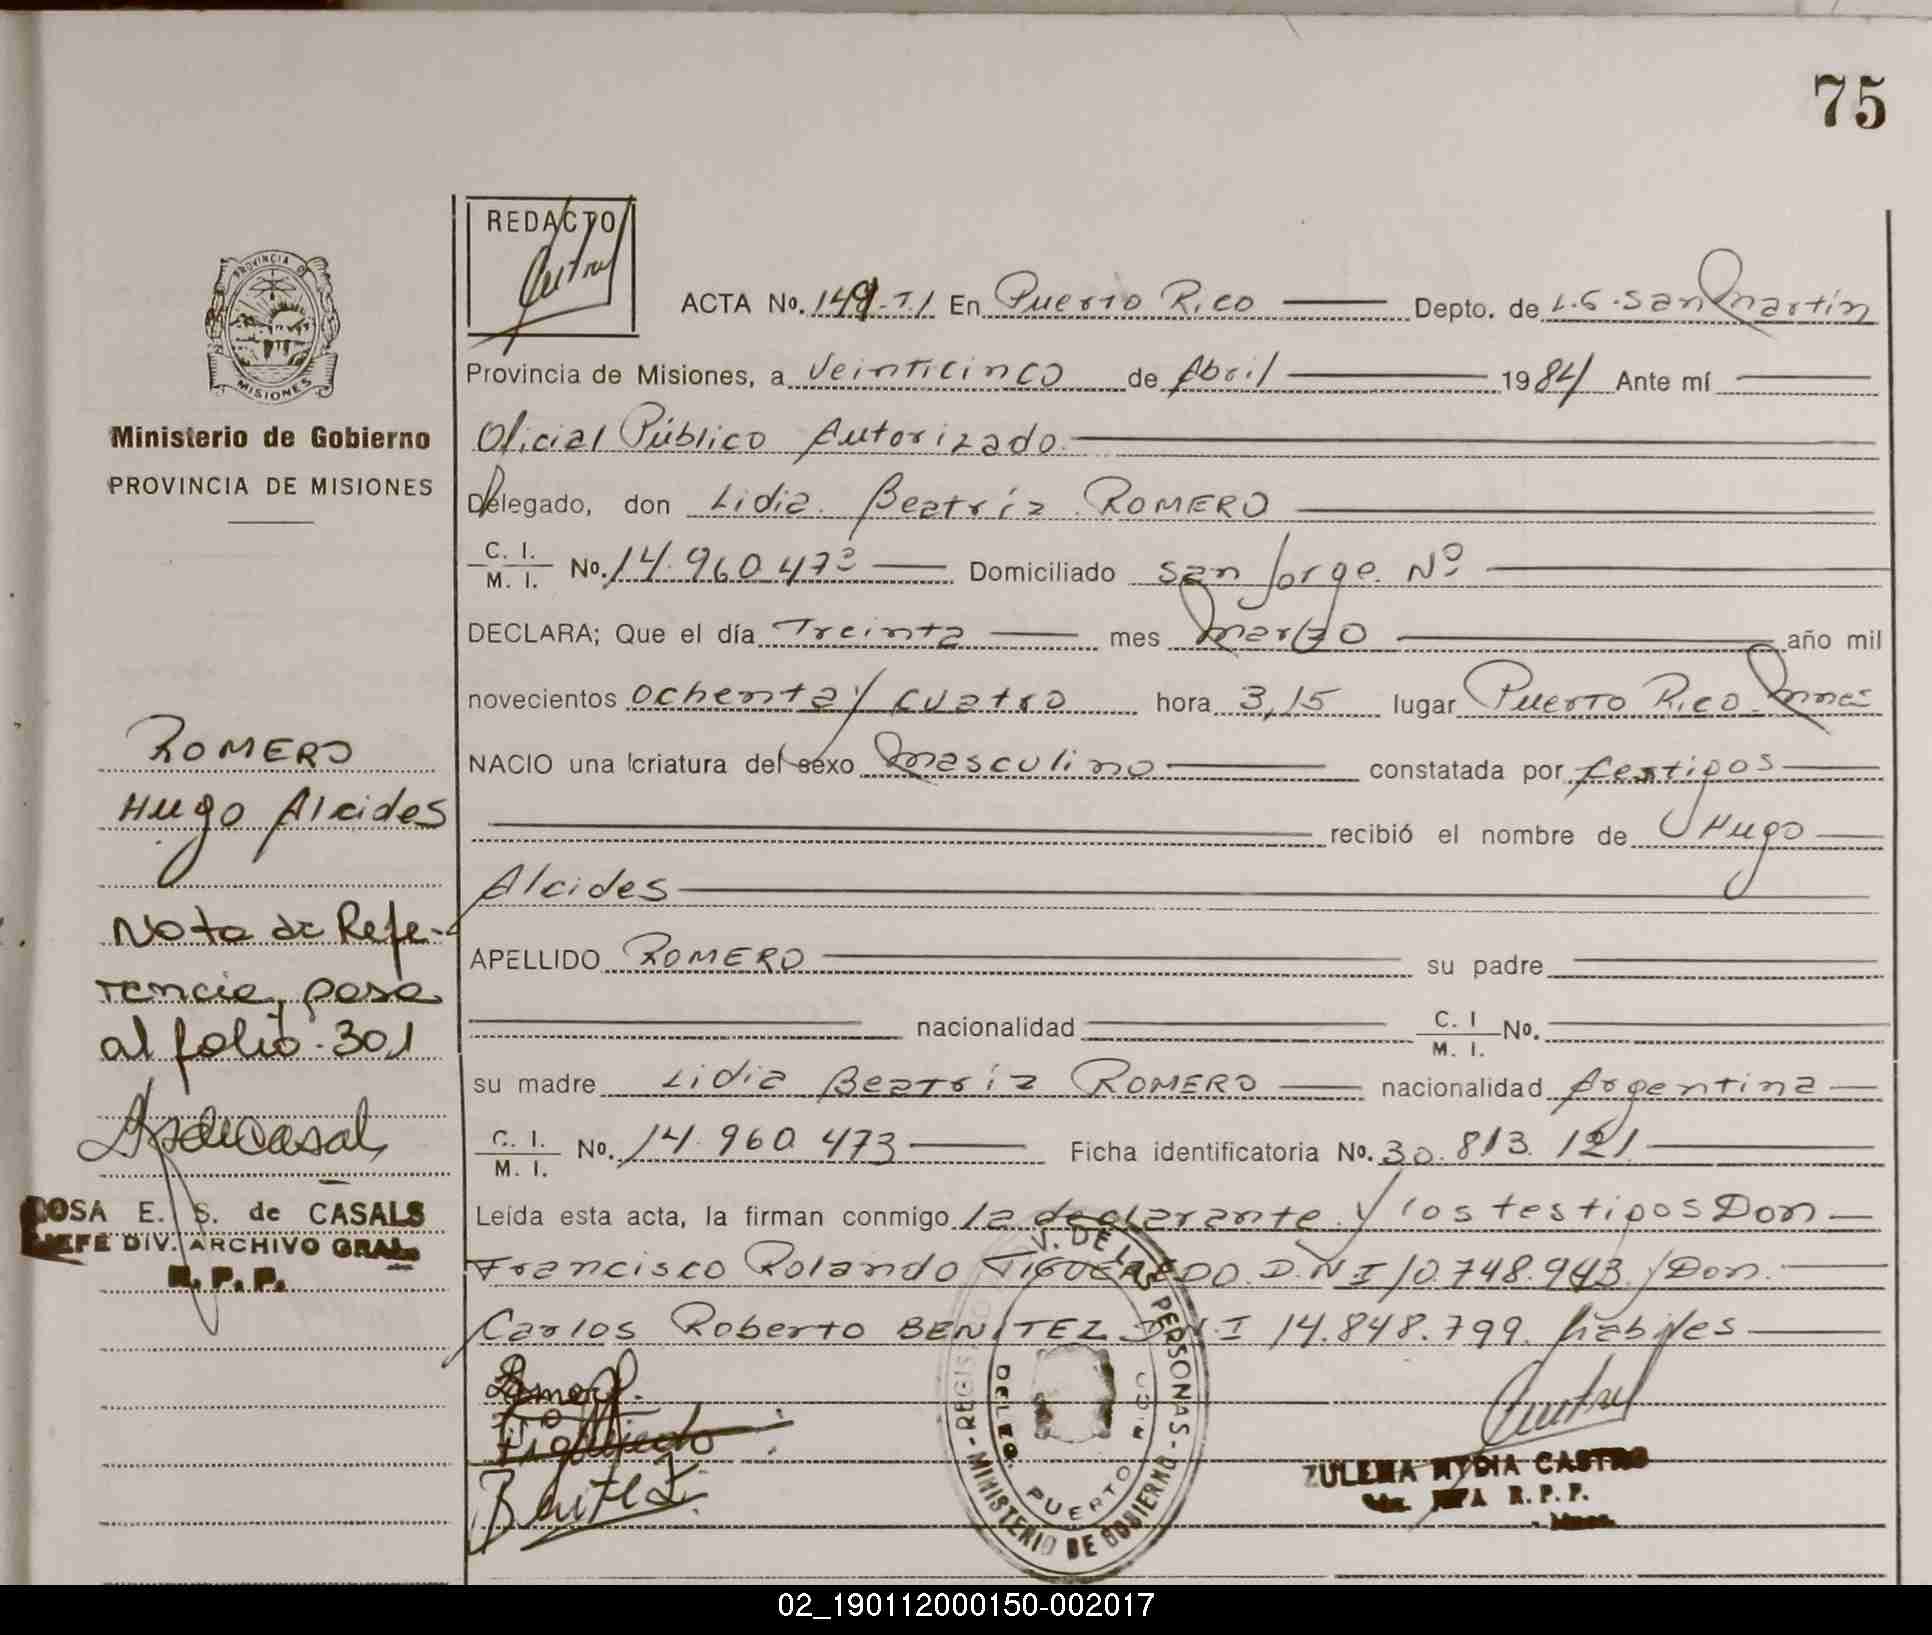 75
REDACTO
ACTA No. 149-T.I En Puerto Rico Depto. de L.G. San Martín
Provincia de Misiones, a Veinticinco de Abril 1984 Ante mí
Oficial Público Autorizado.
Delegado, don Lidia Beatríz ROMERO
C. I.
M. I. No. 14.960.473 Domiciliado San Jorge. Nº
DECLARA; Que el día Treinta mes Marzo año mil
novecientos ochenta y cuatro hora 3,15 lugar Puerto Rico. Mnes
NACIO una criatura del sexo Masculino constatada por testigos
recibió el nombre de Hugo
Alcides
APELLIDO ROMERO su padre
nacionalidad C. I
M. I. No.
su madre Lidia Beatríz ROMERO nacionalidad Argentina
C. I.
M. I. No. 14.960.473 Ficha identificatoria No. 30.813.121
Leída esta acta, la firman conmigo la declarante y los testigos Don
Francisco Rolando FIGUEREDO D.N.I 10.748.943 y Don.
Carlos Roberto BENITEZ D.N.I 14.848.799. hábiles
PROVINCIA DE
MISIONES
Ministerio de Gobierno
PROVINCIA DE MISIONES
ROMERO
Hugo Alcides
Nota de Refe-
rencia, pasa
al folio 301
ROSA E. S. de CASALS
JEFE DIV. ARCHIVO GRAL.
R. P. P.
Benitez
DE LAS PERSONAS - MINISTERIO DE GOBIERNO - REGIS
DELEG. PUERTO RICO
ZULEMA NYDIA CASTRO
R. P. P.
02_190112000150-002017